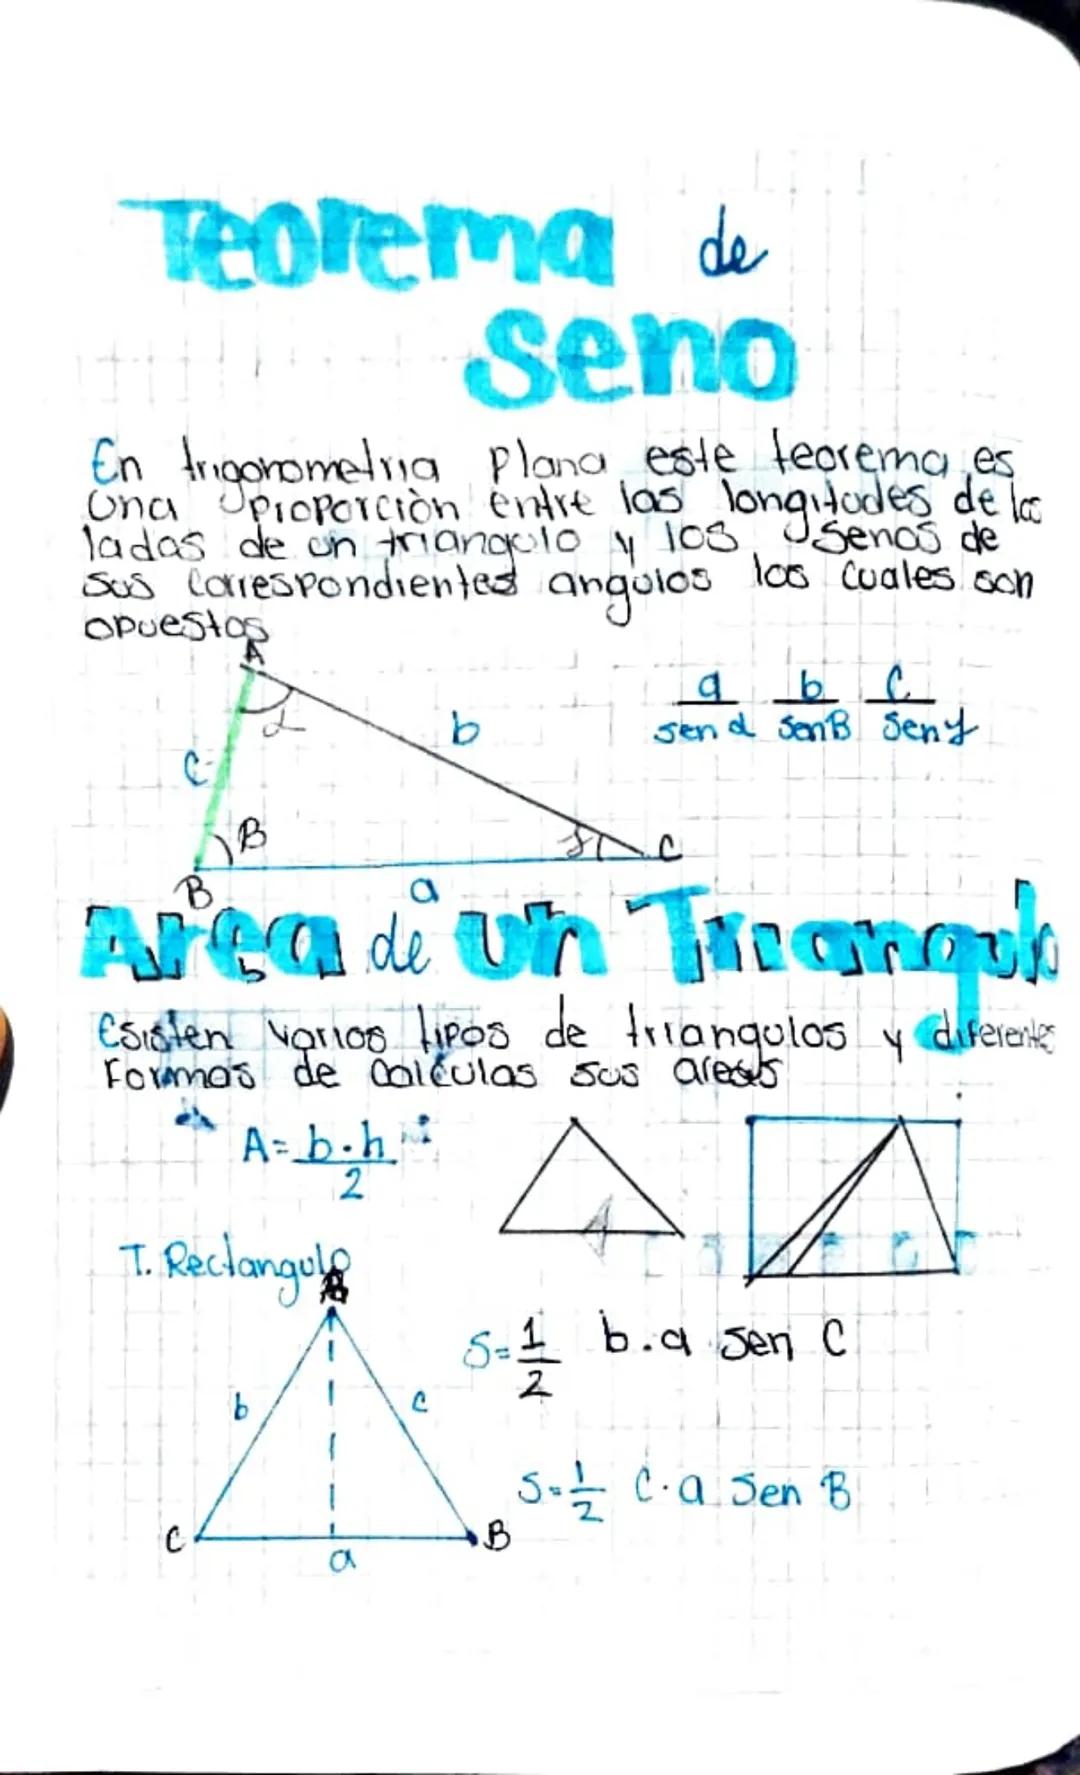 Teorema de
Seno
En trigonometria plana este teorema es
una proporciòn entre las longitudes de los
ladas de un triangulo y los senos de
sus correspondientes angulos los cuales son
opuestos
A
a b c
sen α sen B sen γ
α
b
c
B
γ
C
B
a
Area de un Triangulo
Esisten varios tipos de triangulos y diferentes
Formas de calculas sus areas
A = b · h
2
T. Rectangulo
S = 1 b . a sen C
2
b
c
S = 1 c · a sen B
2
C
B
a